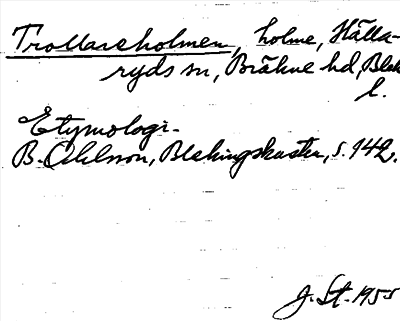 Trollareholmen, holme, Hälla-
ryds sn, Bräkne hd, Blek
l.
Etymologi.
B. Ohlsson, Blekingskusten, s. 142.
J. St. 1955